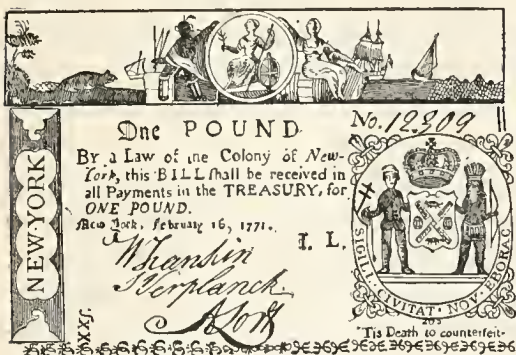 One POUND.
No. 12309
By a Law of the Colony of New-
York, this BILL shall be received in
all Payments in the TREASURY, for
ONE POUND.
New York, February 16, 1771.
I. L.
NEW-YORK
XXs.
SIGILL. CIVITAT. NOV. EBORAC.
'Tis Death to counterfeit